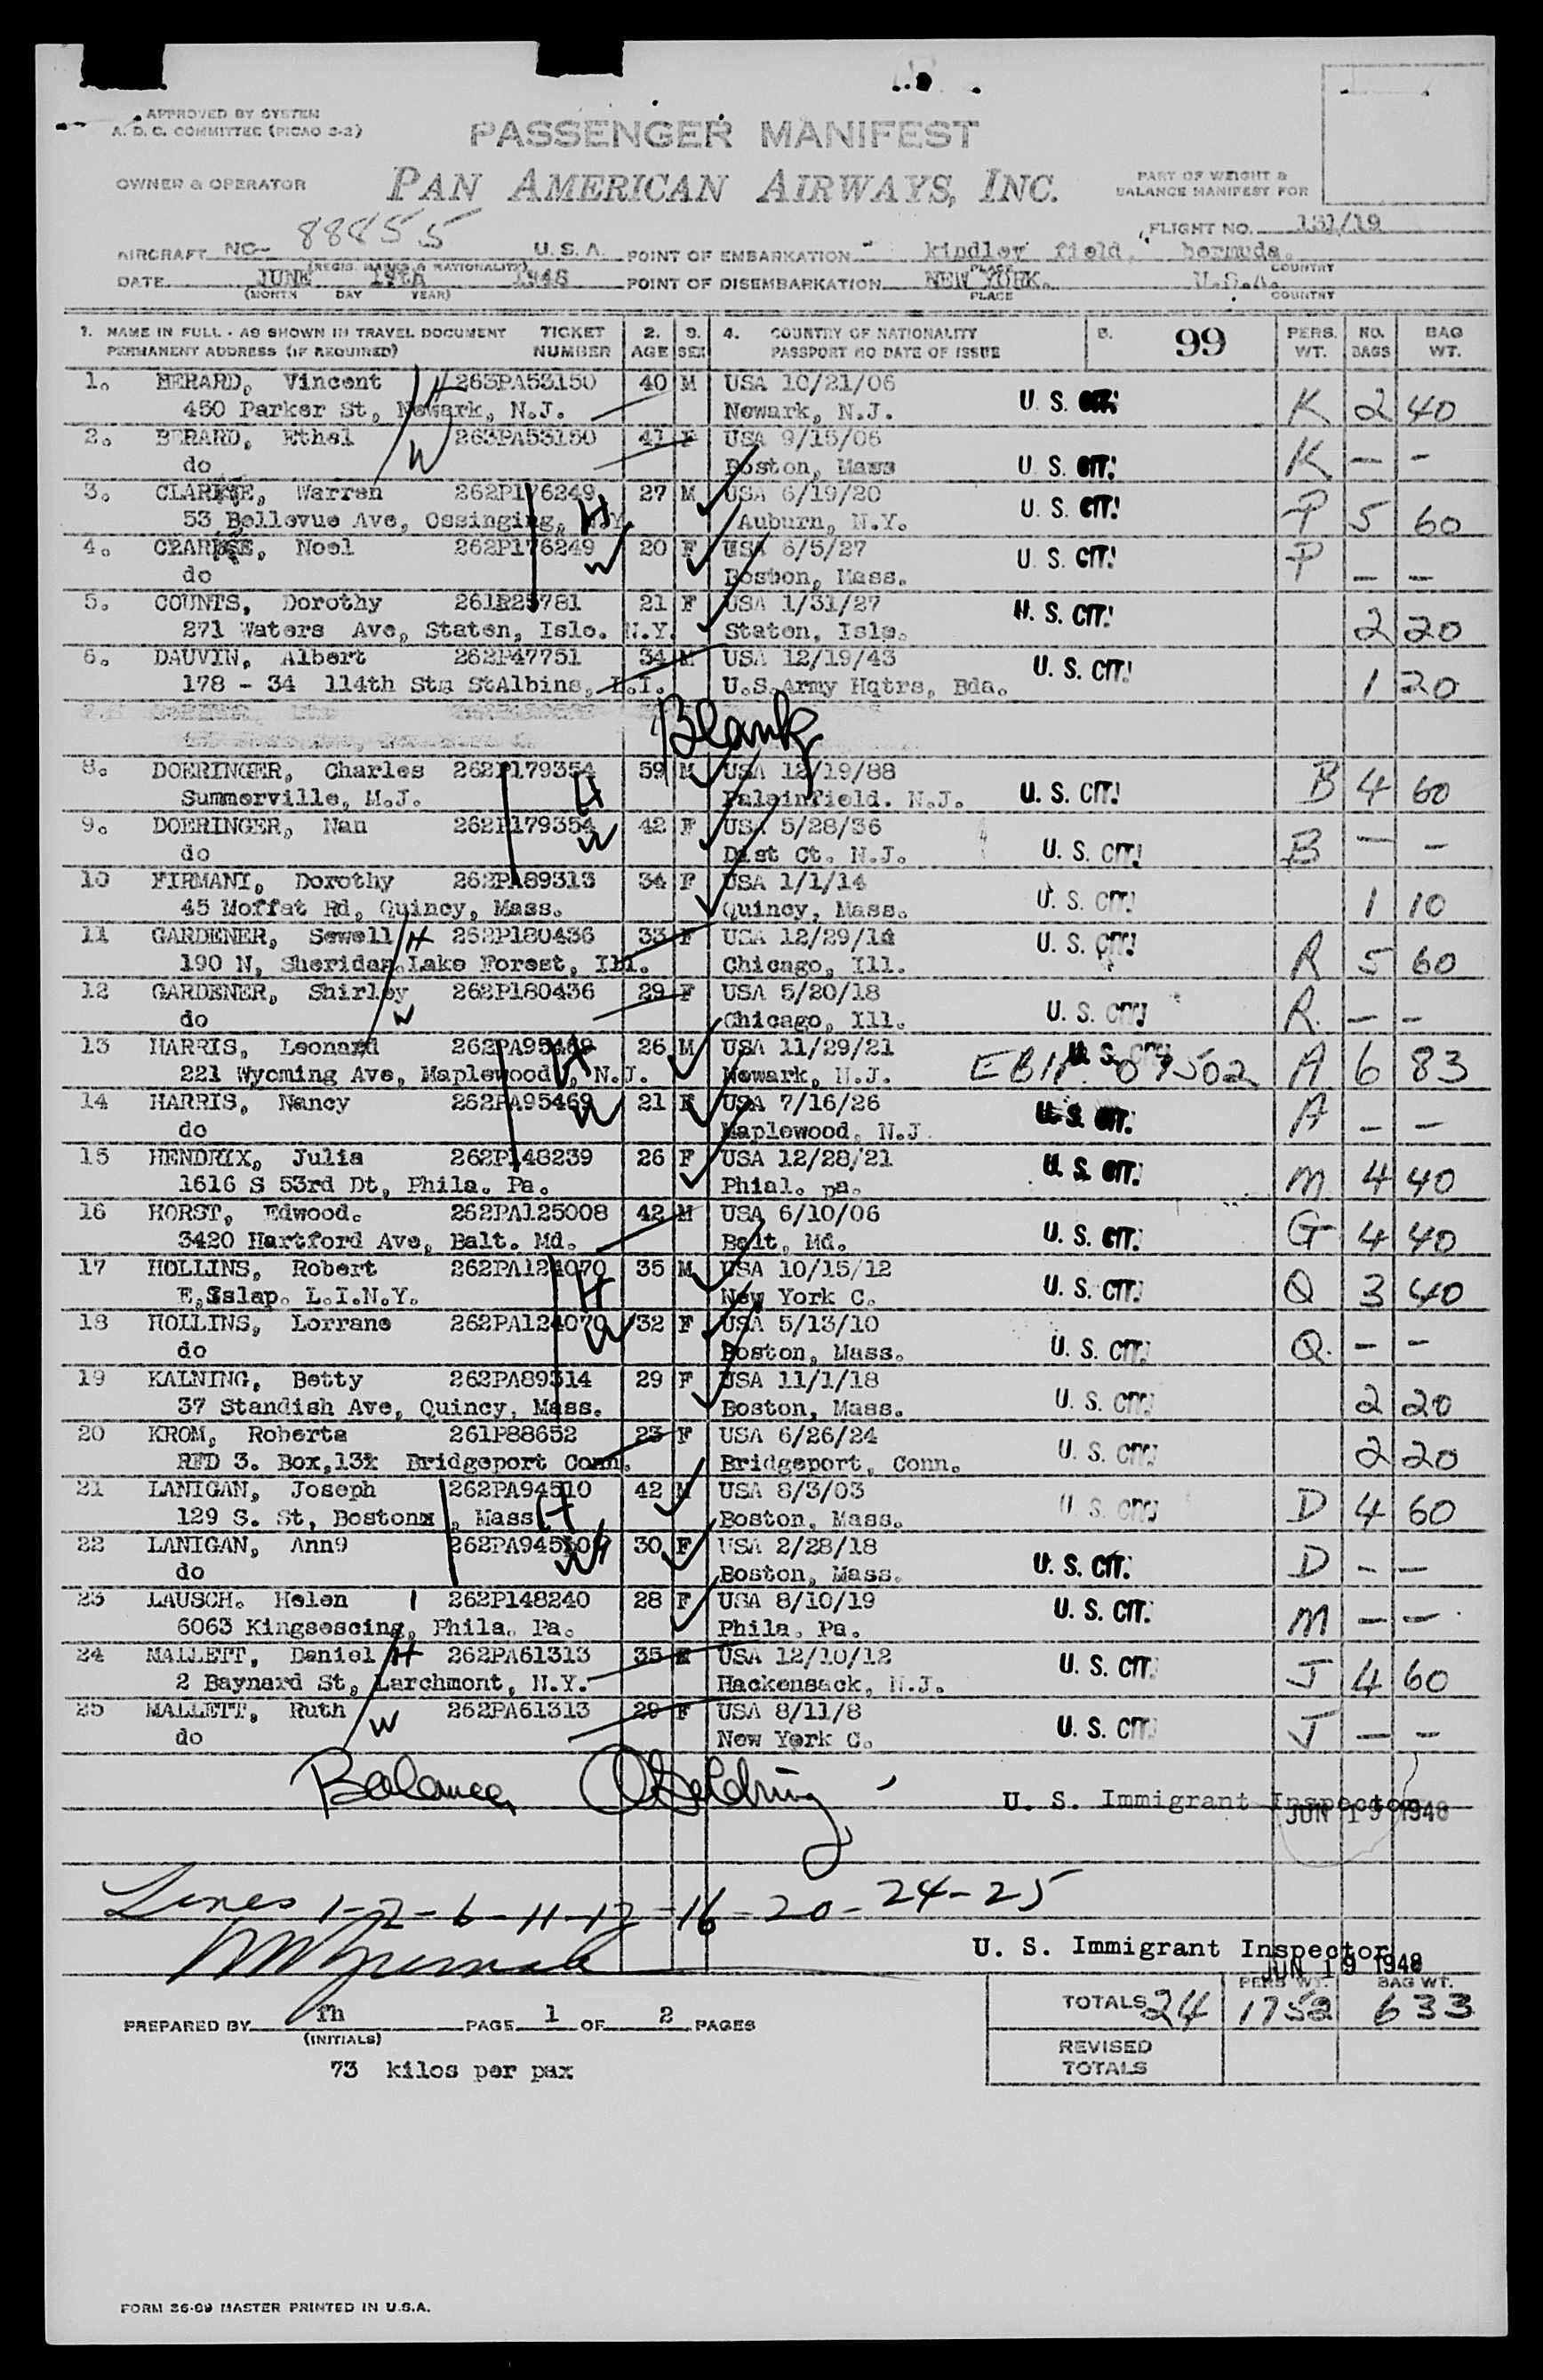 APPROVED BY SYSTEM
A. D. C. COMMITTEE (PICAO 2-2)
PASSENGER MANIFEST
OWNER & OPERATOR PAN AMERICAN AIRWAYS, INC. PART OF WEIGHT & BALANCE MANIFEST FOR
FLIGHT NO. 131/19
AIRCRAFT NC- 88855 U.S.A. POINT OF EMBARKATION kindley field, bermuda.
(REGIS. MARKS & NATIONALITY) PLACE COUNTRY
DATE JUNE 19th 1948 POINT OF DISEMBARKATION NEW YORK. U.S.A.
(MONTH DAY YEAR) PLACE COUNTRY
1. NAME IN FULL - AS SHOWN IN TRAVEL DOCUMENT TICKET 2. 3. 4. COUNTRY OF NATIONALITY 5. 99 PERS. NO. BAG
PERMANENT ADDRESS (IF REQUIRED) NUMBER AGE SEX PASSPORT NO DATE OF ISSUE WT. BAGS WT.
1. BERARD, Vincent H 263PA53150 40 M USA 10/21/06
450 Parker St, Newark, N.J. Newark, N.J. U. S. CIT. K 2 40
2. BERARD, Ethel W 263PA53150 41 F USA 9/15/06
do Boston, Mass U. S. CIT. K - -
3. Warren 262P176249 27 M USA 6/19/20
53 Bellevue Ave, Ossinging, N.Y. H Auburn, N.Y. U. S. CIT. P 5 60
4. Noel 262P176249 W 20 F USA 6/5/27
do Boston, Mass. U. S. CIT. P - -
5. COUNTS, Dorothy 261P25781 21 F USA 1/31/27
271 Waters Ave, Staten, Isle. N.Y. Staten, Isle. U. S. CIT. 2 20
6. DAUVIN, Albert 262P47751 34 M USA 12/19/43
178 - 34 114th Sta StAlbins, L.I. U.S.Army Hqtrs, Bda. U. S. CIT. 1 20
Blank
8. DOERINGER, Charles 262P179354 59 M USA 12/19/88
Summerville, M.J. H Palainfield. N.J. U. S. CIT. B 4 60
9. DOERINGER, Nan 262P179354 W 42 F USA 5/28/36
do Dist Ct. N.J. U. S. CIT. B - -
10 FIRMANI, Dorothy 262PA89313 34 F USA 1/1/14
45 Moffat Rd, Quincy, Mass. Quincy, Mass. U. S. CIT. 1 10
11 GARDENER, Sewell H 262P180436 33 F USA 12/29/14
190 N, Sheridan.Lake Forest, Ill. Chicago, Ill. U. S. CIT. R 5 60
12 GARDENER, Shirley W 262P180436 29 F USA 5/20/18
do Chicago, Ill. U. S. CIT. R. - -
13 HARRIS, Leonard 262PA95469 H 26 M USA 11/29/21 U. S. CIT.
221 Wyoming Ave, Maplewood, N.J. Newark, N.J. 07502 A 6 83
14 HARRIS, Nancy 262PA95469 W 21 F USA 7/16/26
do Maplewood, N.J. U. S. CIT. A - -
15 HENDRIX, Julia 262P148239 26 F USA 12/28/21
1616 S 53rd Dt, Phila. Pa. Phial. pa. U. S. CIT. M 4 40
16 HORST, Edwood. 262PA125008 42 M USA 6/10/06
3420 Hartford Ave, Balt. Md. Balt, Md. U. S. CIT. G 4 40
17 HOLLINS, Robert 262PA124070 35 M USA 10/15/12
E,Islap. L.I.N.Y. H New York C. U. S. CIT. Q 3 40
18 HOLLINS, Lorrane 262PA124070 W 32 F USA 5/13/10
do Boston, Mass. U. S. CIT. Q. - -
19 KALNING, Betty 262PA89314 29 F USA 11/1/18
37 Standish Ave, Quincy, Mass. Boston, Mass. U. S. CIT. 2 20
20 KROM, Roberta 261P88652 23 F USA 6/26/24
RFD 3. Box,13X Bridgeport Conn. Bridgeport, Conn. U. S. CIT. 2 20
21 LANIGAN, Joseph 262PA94510 42 M USA 8/3/03
129 S. St, Bostonx, Mass H Boston, Mass. U. S. CIT. D 4 60
22 LANIGAN, Ann9 W 30 F USA 2/28/18
do Boston, Mass. U. S. CIT. D - -
23 LAUSCH. Helen 262P148240 28 F USA 8/10/19
6063 Kingsescing, Phila. Pa. Phila. Pa. U. S. CIT. M - -
24 MALLETT, Daniel H 262PA61313 35 M USA 12/10/12
2 Baynard St, Larchmont, N.Y. Hackensack, N.J. U. S. CIT. J 4 60
25 MALLETT, Ruth W 262PA61313 29 F USA 8/11/8
do New York C. U. S. CIT. J - -
Balance
U. S. Immigrant Inspector
JUN 19 1948
Lines 1-2-6-11-12-16-20-24-25
U. S. Immigrant Inspector
JUN 19 1948
PERS WT. BAG WT.
TOTALS 24 1752 633
PREPARED BY fh PAGE 1 OF 2 PAGES
(INITIALS)
REVISED TOTALS
73 kilos per pax
FORM 26-09 MASTER PRINTED IN U.S.A.